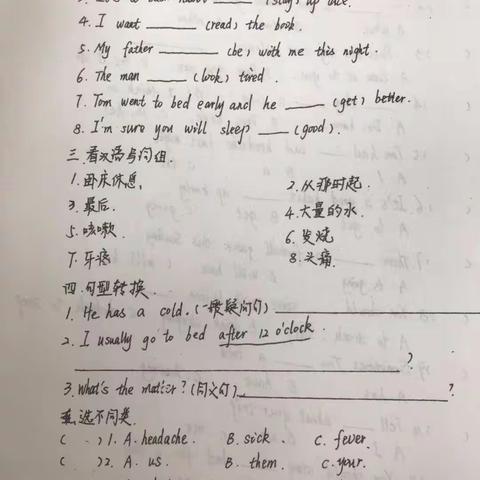 4. I want ______ (read) the book.
5. My father ______ (be) with me this night.
6. The man ____ (look) tired.
7. Tom went to bed early and he ____ (get) better.
8. I'm sure you will sleep ___ (good).
三.看汉语写词组.
1.卧床休息.
2.从那时起.
3.最后.
4.大量的水.
5.咳嗽.
6.发烧
7.牙疼
8.头痛.
四.句型转换.
1. He has a cold. (一般疑问句) ____________
2. I usually go to bed after 12 o'clock.
____________?
3. What's the matter? (同义句) ____________?
五.选不同类.
( ) 1. A. headache. B. sick. C. fever.
( ) 2. A. us. B. them. C. your.